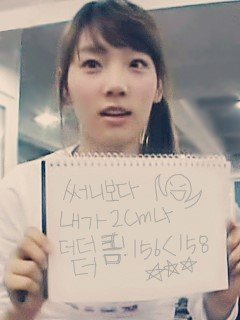 써니보다
내가 2cm나
더더큼! 156<158
더 ☆☆☆